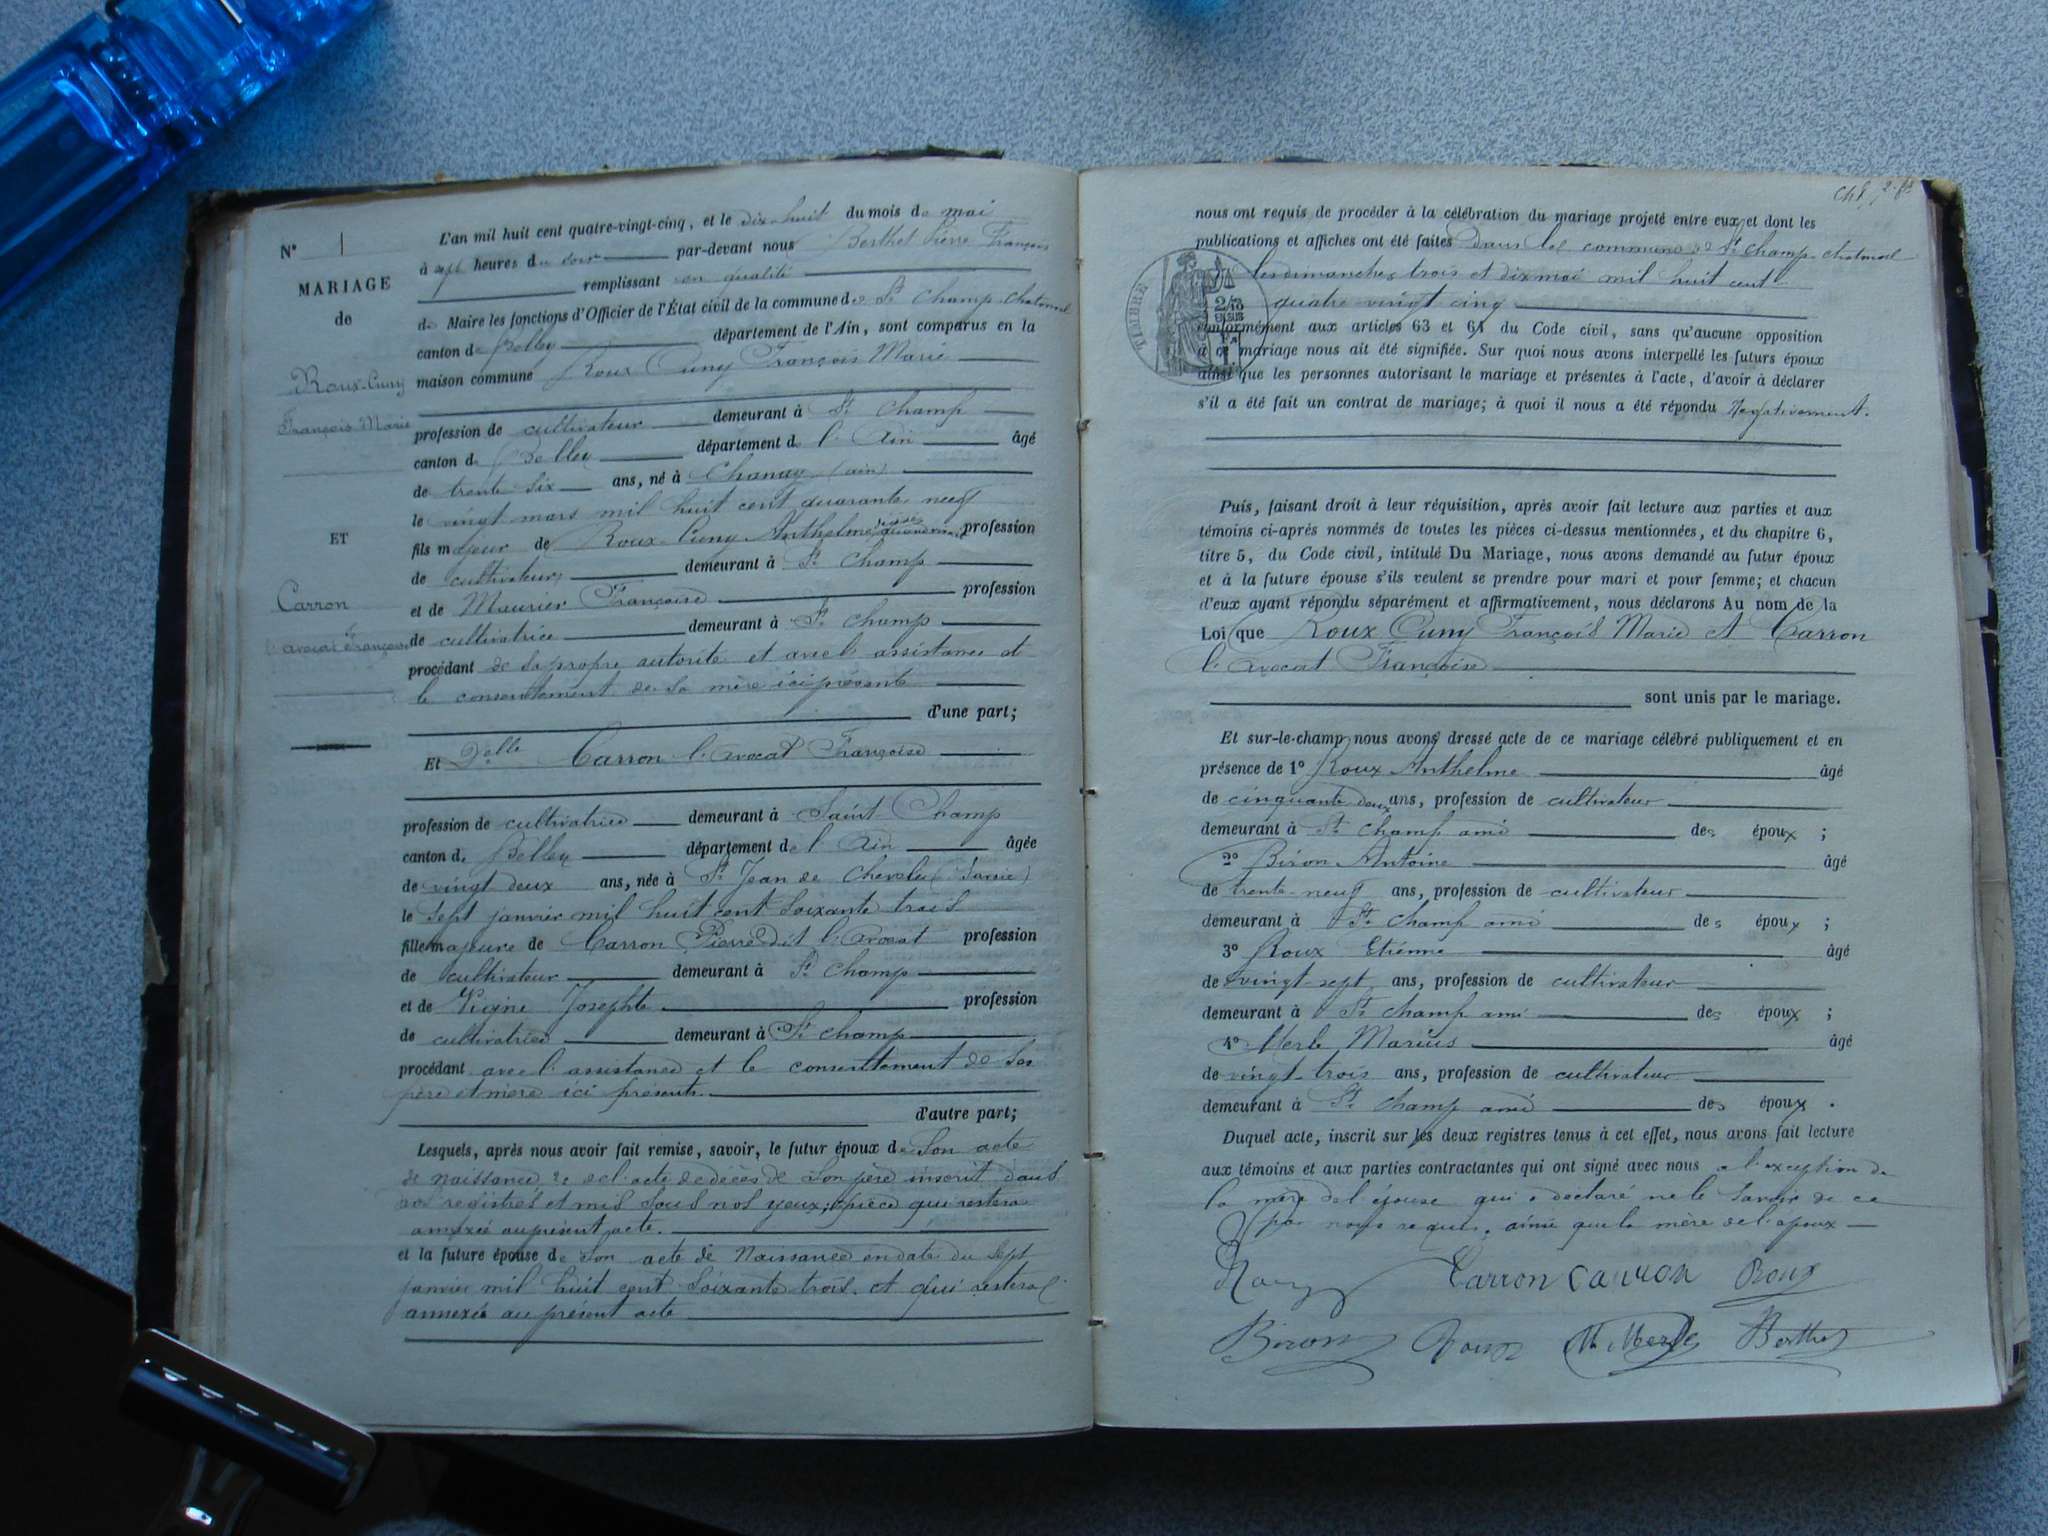 N° 1
MARIAGE
de
Roux-Cuny
François Marie
ET
Carron
l'avocat Françoise
L'an mil huit cent quatre-vingt-cinq, et le dix-huit du mois de mai
à sept heures du soir par-devant nous Berthet Pierre François
remplissant en qualité
de Maire les fonctions d'Officier de l'État civil de la commune de St Champ-Chatonod
canton de Belley département de l'Ain, sont comparus en la
maison commune Roux Cuny François Marie
profession de cultivateur demeurant à St Champ
canton de Belley département de l'Ain âgé
de trente six ans, né à Chanay (ain)
le vingt mars mil huit cent quarante neuf
fils majeur de Roux-Cuny Anthelme profession
de cultivateur demeurant à St Champ
et de Maurier Françoise profession
de cultivatrice demeurant à St Champ
procédant de sa propre autorité et avec l'assistance et
le consentement de sa mère ici présente
d'une part;
Et Delle Carron l'avocat Françoise
profession de cultivatrice demeurant à Saint Champ
canton de Belley département de l'Ain âgée
de vingt deux ans, née à St Jean de Chevelu (Savoie)
le sept janvier mil huit cent soixante trois
fille majeure de Carron Pierre dit l'avocat profession
de cultivateur demeurant à St Champ
et de Josephte profession
de cultivatrice demeurant à St champ
procédant avec l'assistance et le consentement de ses
père et mère ici présents
d'autre part;
Lesquels, après nous avoir fait remise, savoir, le futur époux de Son acte
de naissance de l'acte de décès de son père inscrit dans
nos registres et mis sous nos yeux, pièce qui restera
annexée au présent acte.
et la future épouse de son acte de Naissance en date du sept
janvier mil huit cent soixante trois. et qui restera
annexé au présent acte
nous ont requis de procéder à la célébration du mariage projeté entre eux, et dont les
publications et affiches ont été faites dans les commune de St Champ-Chatonod
les dimanches trois et dix mai mil huit cent
quatre-vingt cinq
conformément aux articles 63 et 64 du Code civil, sans qu'aucune opposition
à ce mariage nous ait été signifiée. Sur quoi nous avons interpellé les futurs époux
ainsi que les personnes autorisant le mariage et présentes à l'acte, d'avoir à déclarer
s'il a été fait un contrat de mariage; à quoi il nous a été répondu Negativement.
TIMBRE
Puis, faisant droit à leur réquisition, après avoir fait lecture aux parties et aux
témoins ci-après nommés de toutes les pièces ci-dessus mentionnées, et du chapitre 6,
titre 5, du Code civil, intitulé Du Mariage, nous avons demandé au futur époux
et à la future épouse s'ils veulent se prendre pour mari et pour femme; et chacun
d'eux ayant répondu séparément et affirmativement, nous déclarons Au nom de la
Loi que Roux Cuny François Marie et Carron
l'avocat Françoise
sont unis par le mariage.
Et sur-le-champ nous avons dressé acte de ce mariage célébré publiquement et en
présence de 1° Roux Anthelme âgé
de cinquante deux ans, profession de cultivateur
demeurant à St Champ ami des époux ;
2° Biron Antoine âgé
de trente-neuf ans, profession de cultivateur
demeurant à St Champ ami des époux ;
3° Roux Etienne âgé
de vingt-sept ans, profession de cultivateur
demeurant à St Champ ami des époux ;
4° Merle Marius âgé
de vingt-trois ans, profession de cultivateur
demeurant à St Champ ami des époux .
Duquel acte, inscrit sur les deux registres tenus à cet effet, nous avons fait lecture
aux témoins et aux parties contractantes qui ont signé avec nous a l'exception de
la mère de l'épouse qui a déclaré ne le savoir de ce
par nous requis. ainsi que la mère de l'époux
Roux Carron carron Roux
Biron Roux M Merle Berthet